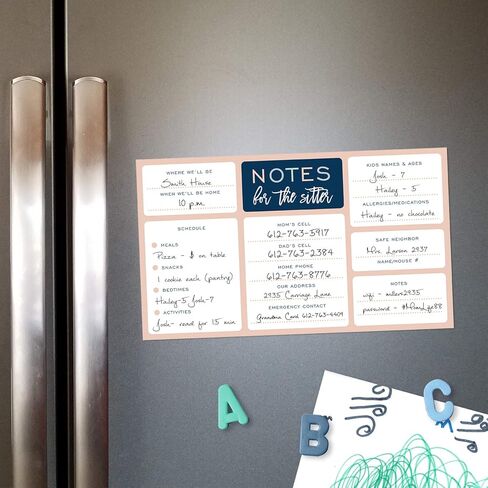 WHERE WE'LL BE
Smith House
WHEN WE'LL BE HOME
10 p.m.
SCHEDULE
MEALS
Pizza - $ on table
SNACKS
1 cookie each (pantry)
BEDTIMES
Hailey-5 Josh-7
ACTIVITIES
Josh- read for 15 min
NOTES
for the sitter
MOM'S CELL
612-763-5917
DAD'S CELL
612-763-2384
HOME PHONE
612-763-8776
OUR ADDRESS
2935 Carriage Lane
EMERGENCY CONTACT
Grandma Carol 612-763-4409
KIDS NAMES & AGES
Josh - 7
Hailey - 5
ALLERGIES/MEDICATIONS
Hailey - no chocolate
SAFE NEIGHBOR
Mrs. Larson 2937
NAME/HOUSE #
NOTES
wifi - millers2935
password - #MomLife88
A
B
C